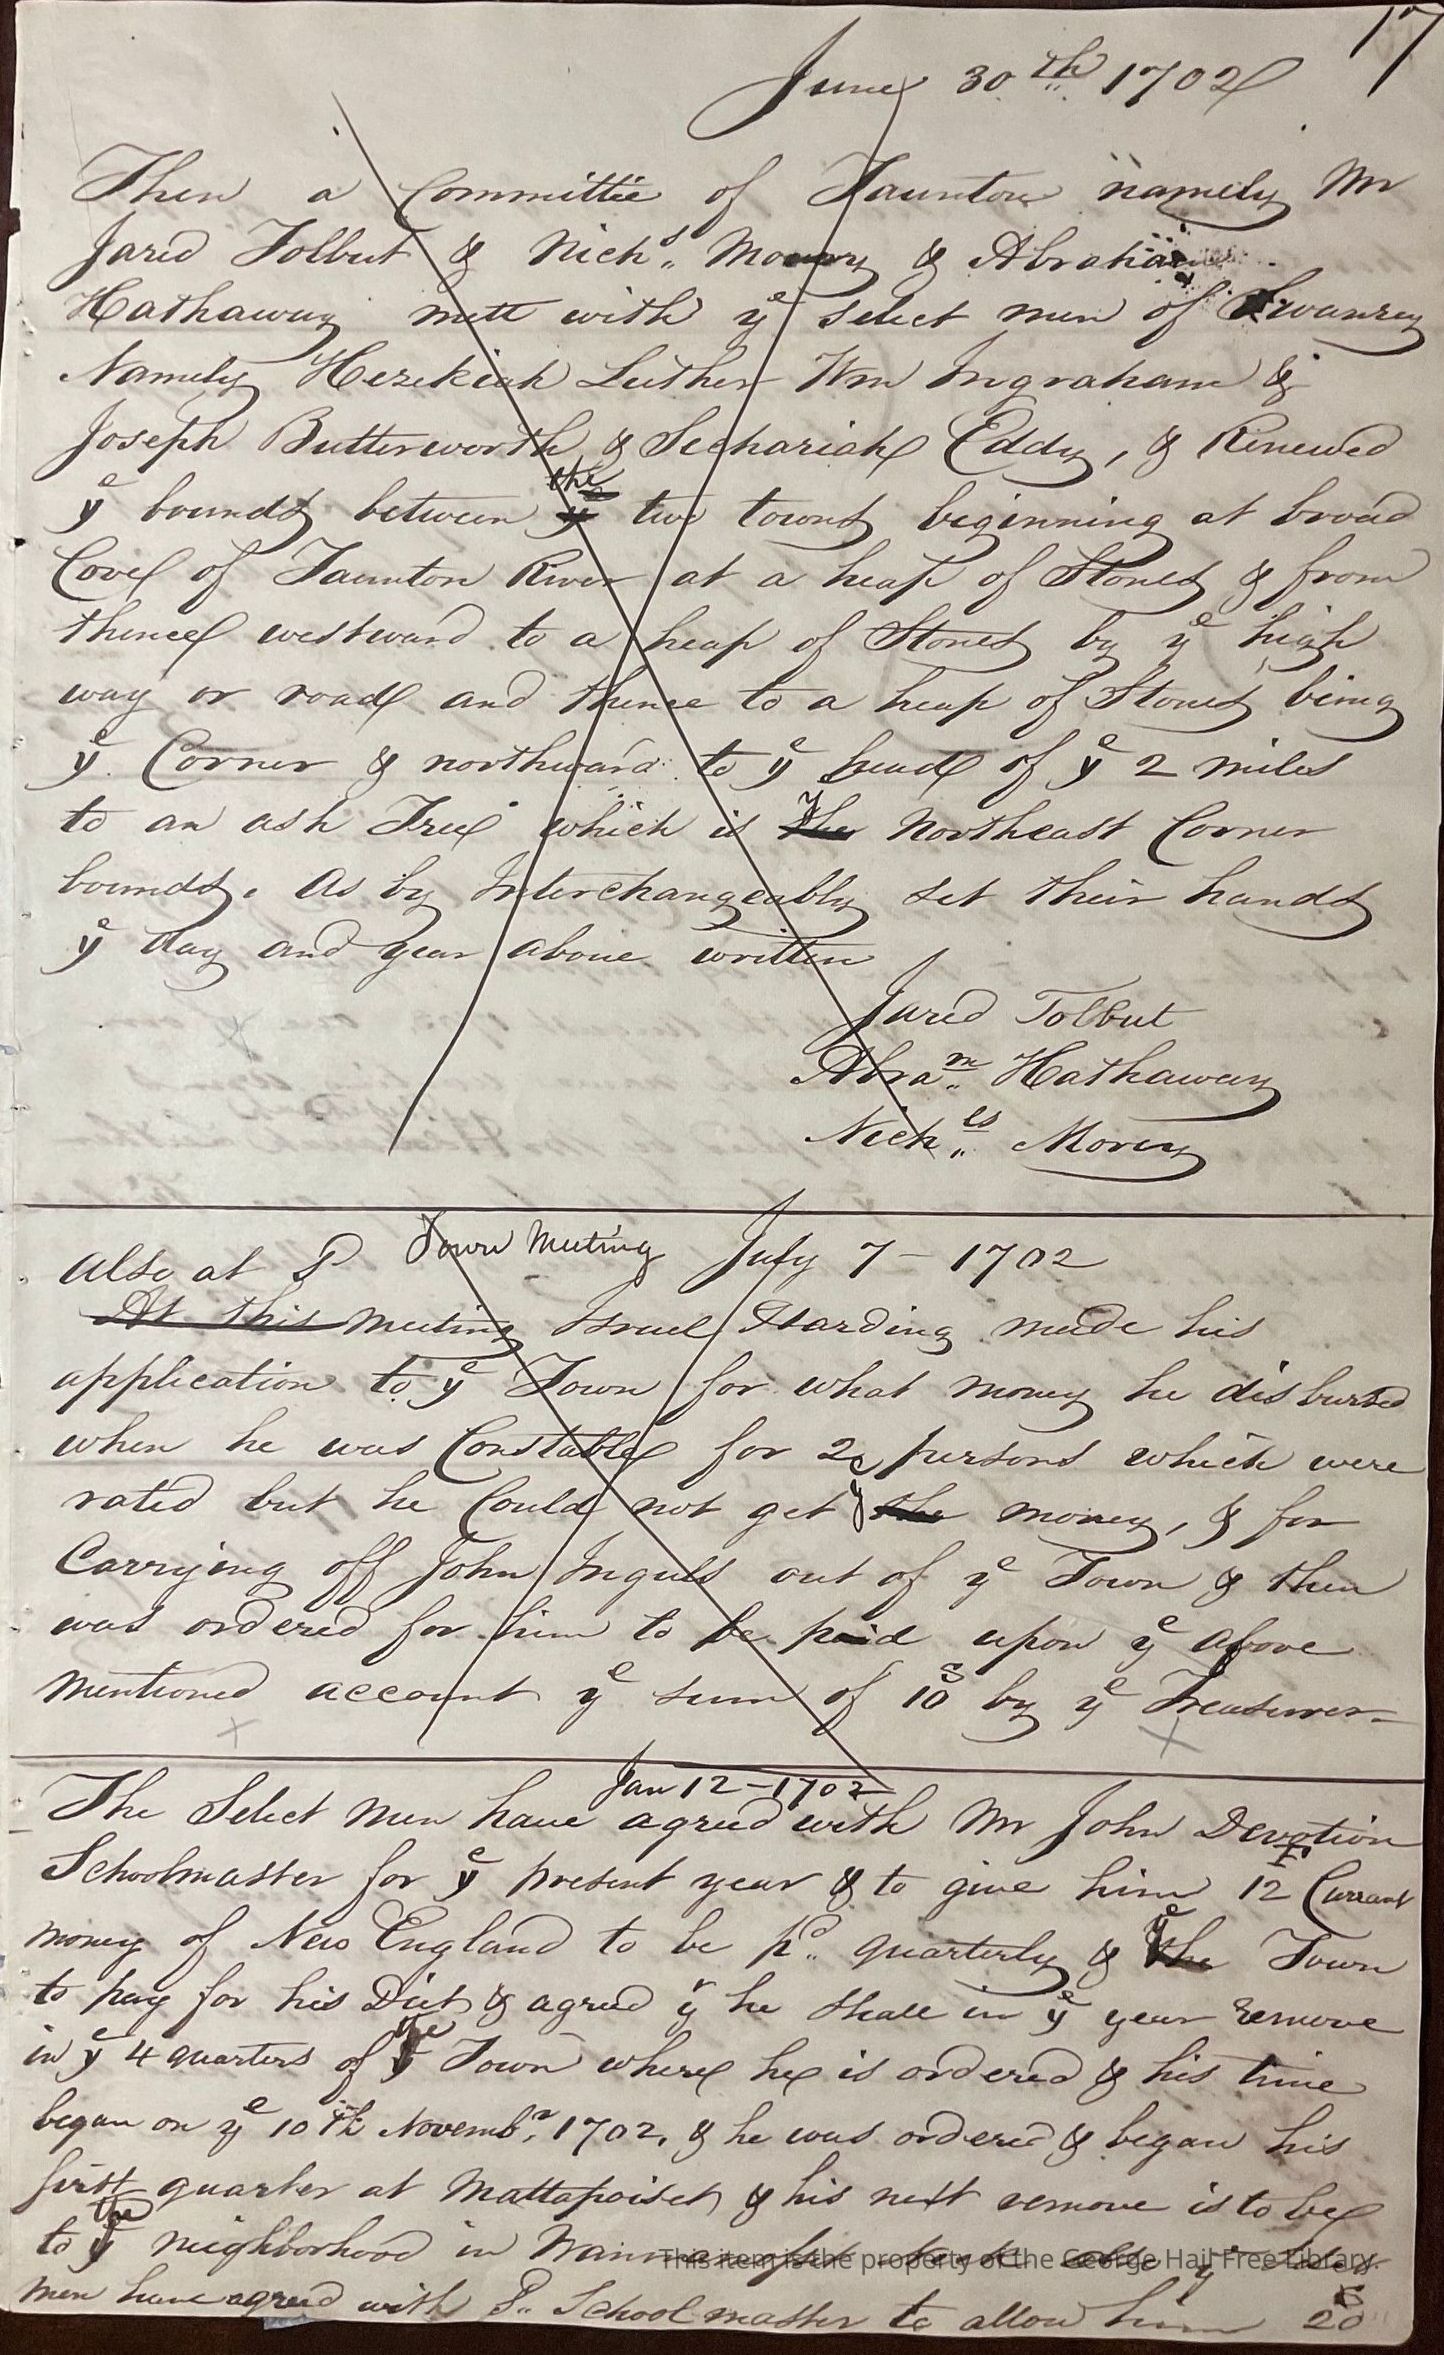 17
June 30th 1702
Then a Committie of Taunton namely Mr
Jared Tolbut & Nichs. Morey & Abraham
Hathaway mett with ye select men of Swanzey
Namely Hezekiah Luther Wm Ingraham &
Joseph Butterworth & Sechariah Eddy, & Renewed
ye bounds between the two towns beginning at broad
Cove of Taunton River at a heap of Stones & from
thence westward to a heap of Stones by ye high
way or road and thence to a heap of Stones being
ye Corner & northward to ye head of ye 2 miles
to an ash Tree which is the Northeast Corner
bounds. As by Interchangeably set their hands
ye day and year above written
Jared Tolbut
Abram. Hathaway
Nichls. Morey
Also at P Town Meeting July 7 - 1702
At this meeting Israel Harding made his
application to ye Town for what money he disbursed
when he was Constable for 2 persons which were
rated but he Could not get ye the money, & for
Carrying off John Inguls out of ye Town & then
was ordered for him to be paid upon ye above
mentioned account ye sum of 10s by ye Treasurer
Jan 12 - 1702
The Select men have agreed with Mr John Devotion
Schoolmaster for ye present year & to give him 12£ Currant
money of New England to be pd. quarterly & ye the Town
to pay for his Diet & agreed yt he shall in ye year remove
in ye 4 quarters of the Town where he is ordered & his time
began on ye 10th Novembr. 1702, & he was ordered & began his
first quarter at Mattapoiset & his next remove is to be
to the neighborhood in
men have agreed with P. Schoolmaster to allow him 20s
This item is the property of the George Hail Free Library.